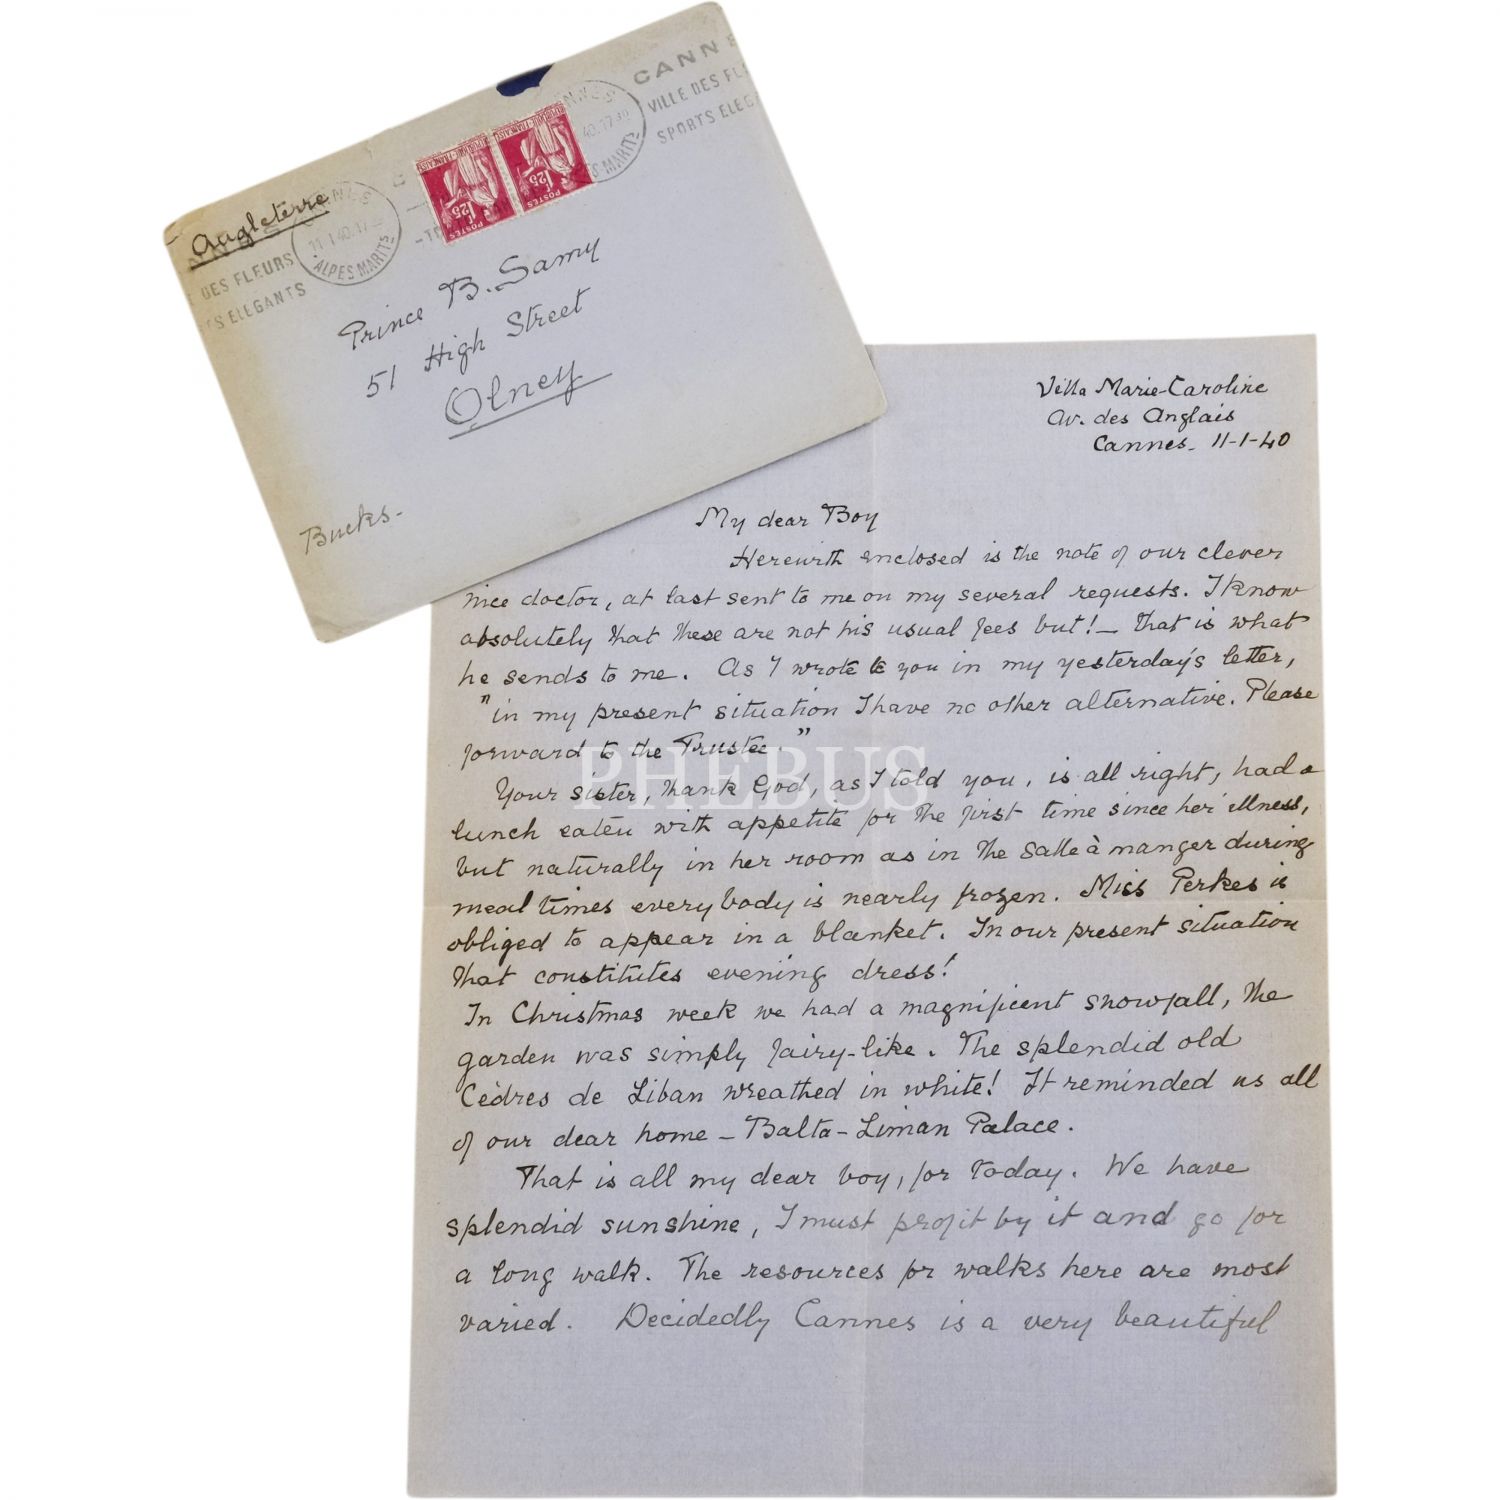 CANNE
VILLE DES FL
SPORTS ELEG
40.17 30
ES MARIT
REPUBLIQUE-FRANÇAISE
REPUBLIQUE-FRANÇAISE
1F25
POSTES
1F25
POSTES
Angleterre
11-1 40.17
ALPES MARITS
DES FLEURS
TS ELEGANTS
Prince B. Samy
51 High Street
Olney
Bucks-
Villa Marie-Caroline
Av. des Anglais
Cannes- 11-1-40
My dear Boy
Herewith enclosed is the note of our clever
nice doctor, at last sent to me on my several requests. I know
absolutely that these are not his usual fees but!- that is what
he sends to me. As I wrote to you in my yesterday's letter,
"in my present situation I have no other alternative. Please
forward to the Trustee."
Your sister, thank God, as I told you, is all right, had a
lunch eaten with appetite for the first time since her illness,
but naturally in her room as in the Salle à manger during
meal times everybody is nearly frozen. Miss Perkes is
obliged to appear in a blanket. In our present situation
that constitutes evening dress!
In Christmas week we had a magnificent snowfall, the
garden was simply fairy-like. The splendid old
Cèdres de Liban wreathed in white! It reminded us all
of our dear home - Balta-Liman Palace.
That is all my dear boy, for today. We have
splendid sunshine, I must profit by it and go for
a long walk. The resources for walks here are most
varied. Decidedly Cannes is a very beautiful
PHEBUS